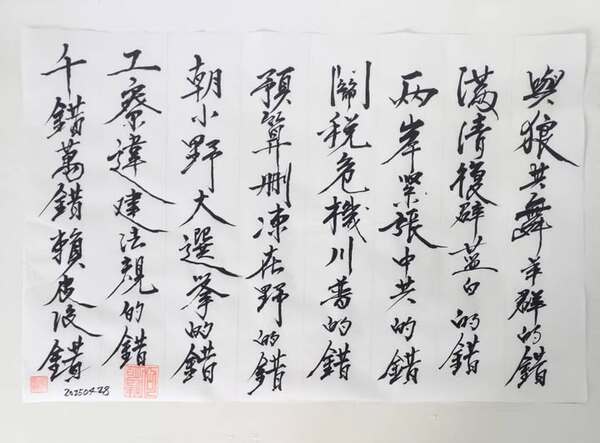 與狼共舞羊群的錯
滿清復辟藍白的錯
兩岸緊張中共的錯
關稅危機川普的錯
預算刪凍在野的錯
朝小野大選舉的錯
工寮違建法規的錯
千錯萬錯賴皮没錯
20250428